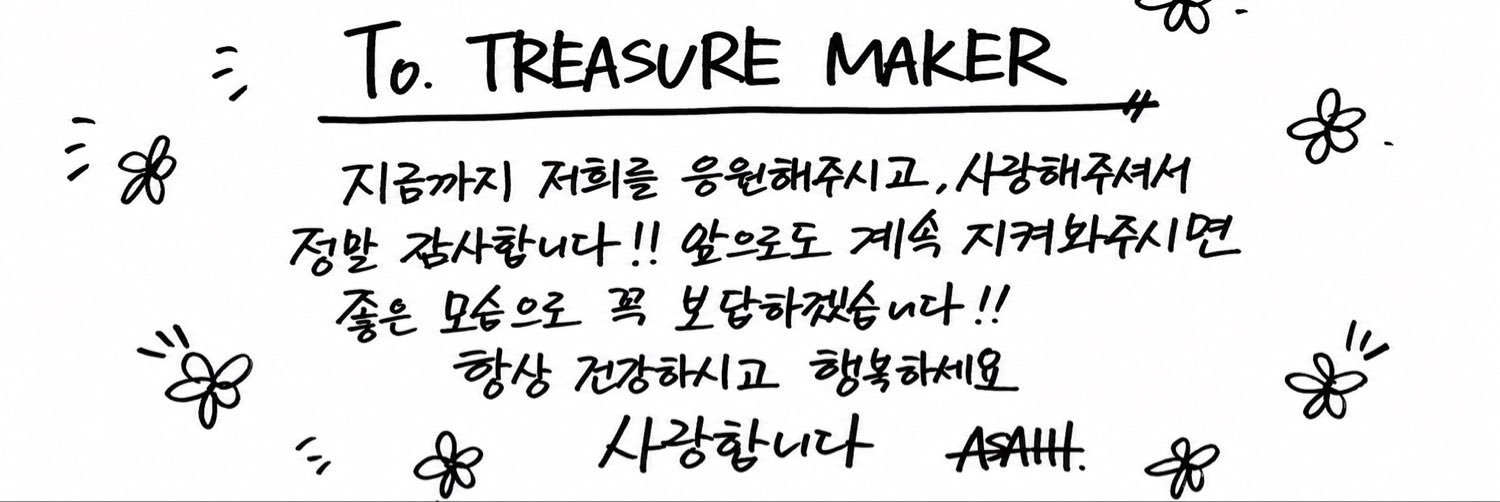 To. TREASURE MAKER
지금까지 저희를 응원해주시고, 사랑해주셔서
정말 감사합니다!! 앞으로도 계속 지켜봐주시면
좋은 모습으로 꼭 보답하겠습니다!!
항상 건강하시고 행복하세요
사랑합니다 ASAHI.